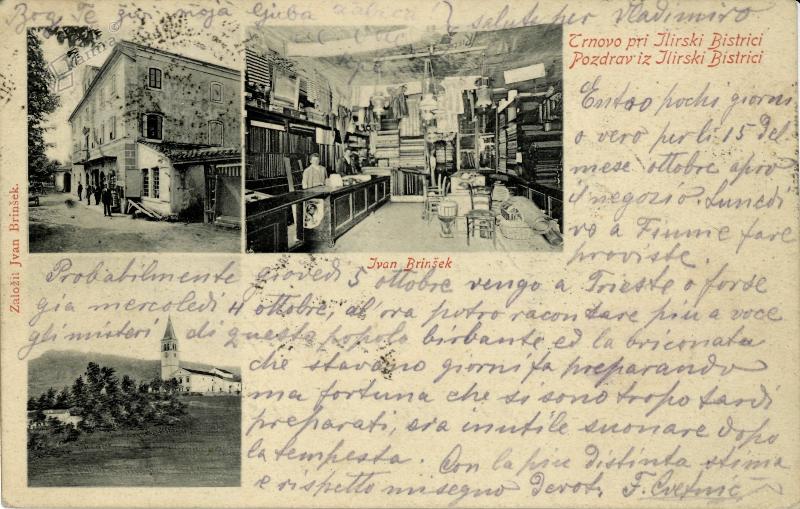 Bog Te živi moja ljuba salute per Vladimiro
Trnovo pri Ilirski Bistrici
Pozdrav iz Ilirski Bistrici
Entro pochi giorni
o vero per li 15 del
mese ottobre apro
il negozio. Lunedi
vo a Fiume fare
proviste.
Ivan Brinšek
Založil Jvan Brinšek.
Probabilmente giovedi 5 ottobre vengo a Trieste o forse
gia mercoledi 4 ottobre, al'ora potro racontare piu a voce
gli misteri di questa popolo birbante ed la briconata
che stavano giorni fa preparando
ma fortuna che si sono tropo tardi
preparati, ora inutile suonare dopo
la tempesta. Con la piu distinta stima
e rispetto mi segno devot. F. Cvetnić